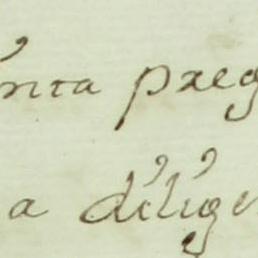 nta preg
a dilige